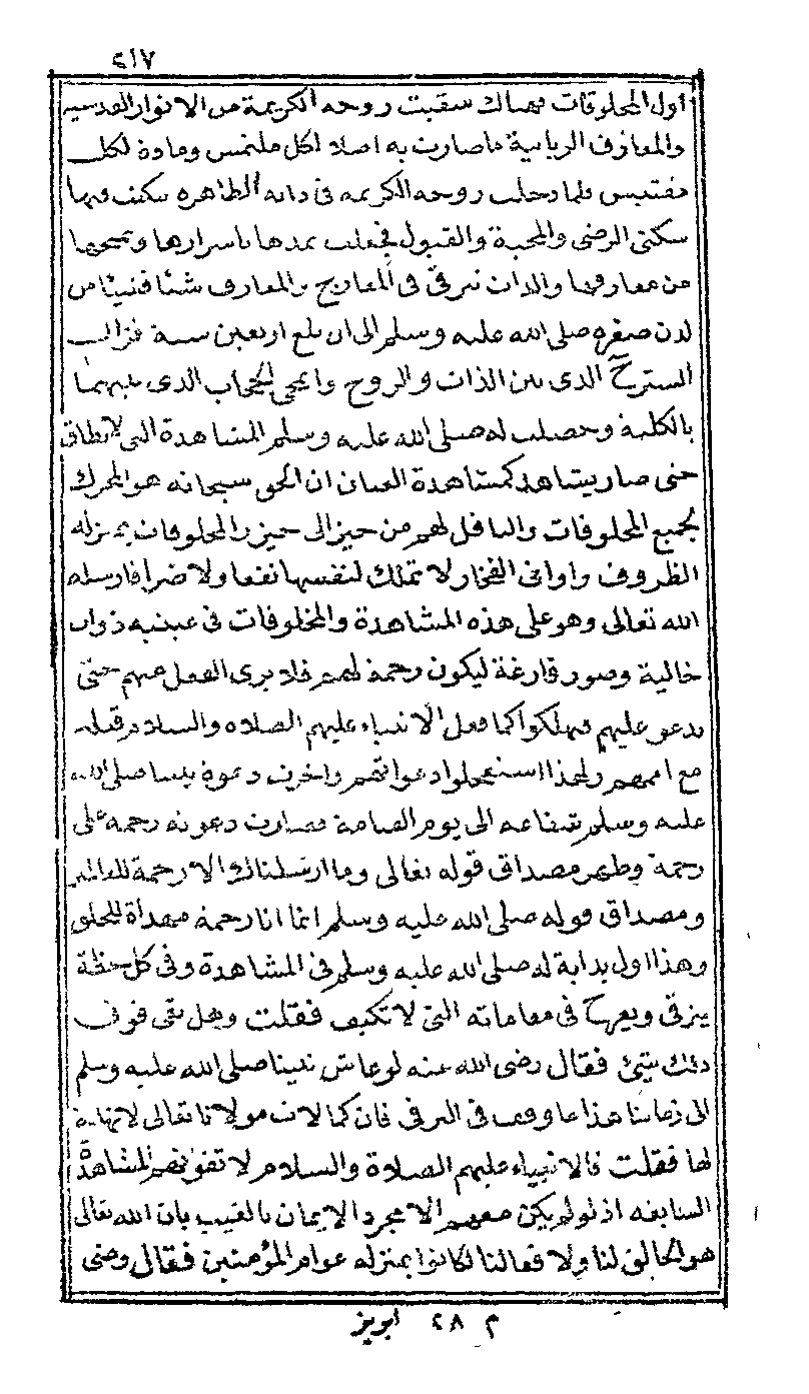 ٢١٧
أول المخلوقات فهناك سقيت روحه الكريمة من الانوار القدسية
والمعارف الربانية ما صارت به اصلا لكل ملتمس ومادة لكل
مقتبس فلما دخلت روحه الكريمة في ذاته الطاهرة سكنت فيها
سكنى الرضى والمحبة والقبول فجعلت تمدها باسرارها وتمنحها
من معارفها والذات تترقى في المعارج والمعارف شيئا فشيئا من
لدن صغره صلى الله عليه وسلم الى ان بلغ اربعين سنة فزال
الستر الذى بين الذات والروح وانمحى الحجاب الذى بينهما
بالكلية وحصلت له صلى الله عليه وسلم المشاهدة التى لا تطاق
حتى صار يشاهد كمشاهدة العيان ان الحق سبحانه هو المحرك
لجميع المخلوقات والناقل لهم من حيز الى حيز والمخلوقات بمنزلة
الظروف واوانى الفخار لا تملك لنفسها نفعا ولا ضرا فارسله
الله تعالى وهو على هذه المشاهدة والمخلوقات فى عينيه ذوات
خالية وصور فارغة ليكون رحمة لهم فلا يرى الفعل منهم حتى
يدعو عليهم فيهلكوا كما فعل الانبياء عليهم الصلاة والسلام قبله
مع اممهم ولهذا استعجلوا دعواتهم واخرت دعوة نبينا صلى الله
عليه وسلم شفاعة الى يوم القيامة فصارت دعوته رحمة على
رحمة وظهر مصداق قوله تعالى وما ارسلناك الا رحمة للعالمين
ومصداق قوله صلى الله عليه وسلم انما انا رحمة مهداة للخلق
وهذا اول بداية له صلى الله عليه وسلم فى المشاهدة وفى كل لحظة
يترقى ويعرج فى مقاماته التى لا تكيف فقلت وهل بقى فوق
ذلك شئ فقال رضى الله عنه لو عاش نبينا صلى الله عليه وسلم
الى زماننا هذا ما وقف فى الترقى فان كمالات مولانا تعالى لا نهاية
لها فقلت فالانبياء عليهم الصلاة والسلام لا تفوتهم المشاهدة
السابقة اذ لو لم يكن معهم الا مجرد الايمان بالغيب بان الله تعالى
هو الخالق لنا ولا فعالنا لكانوا بمنزلة عوام المؤمنين فقال رضى
م ٢٨ ابريز